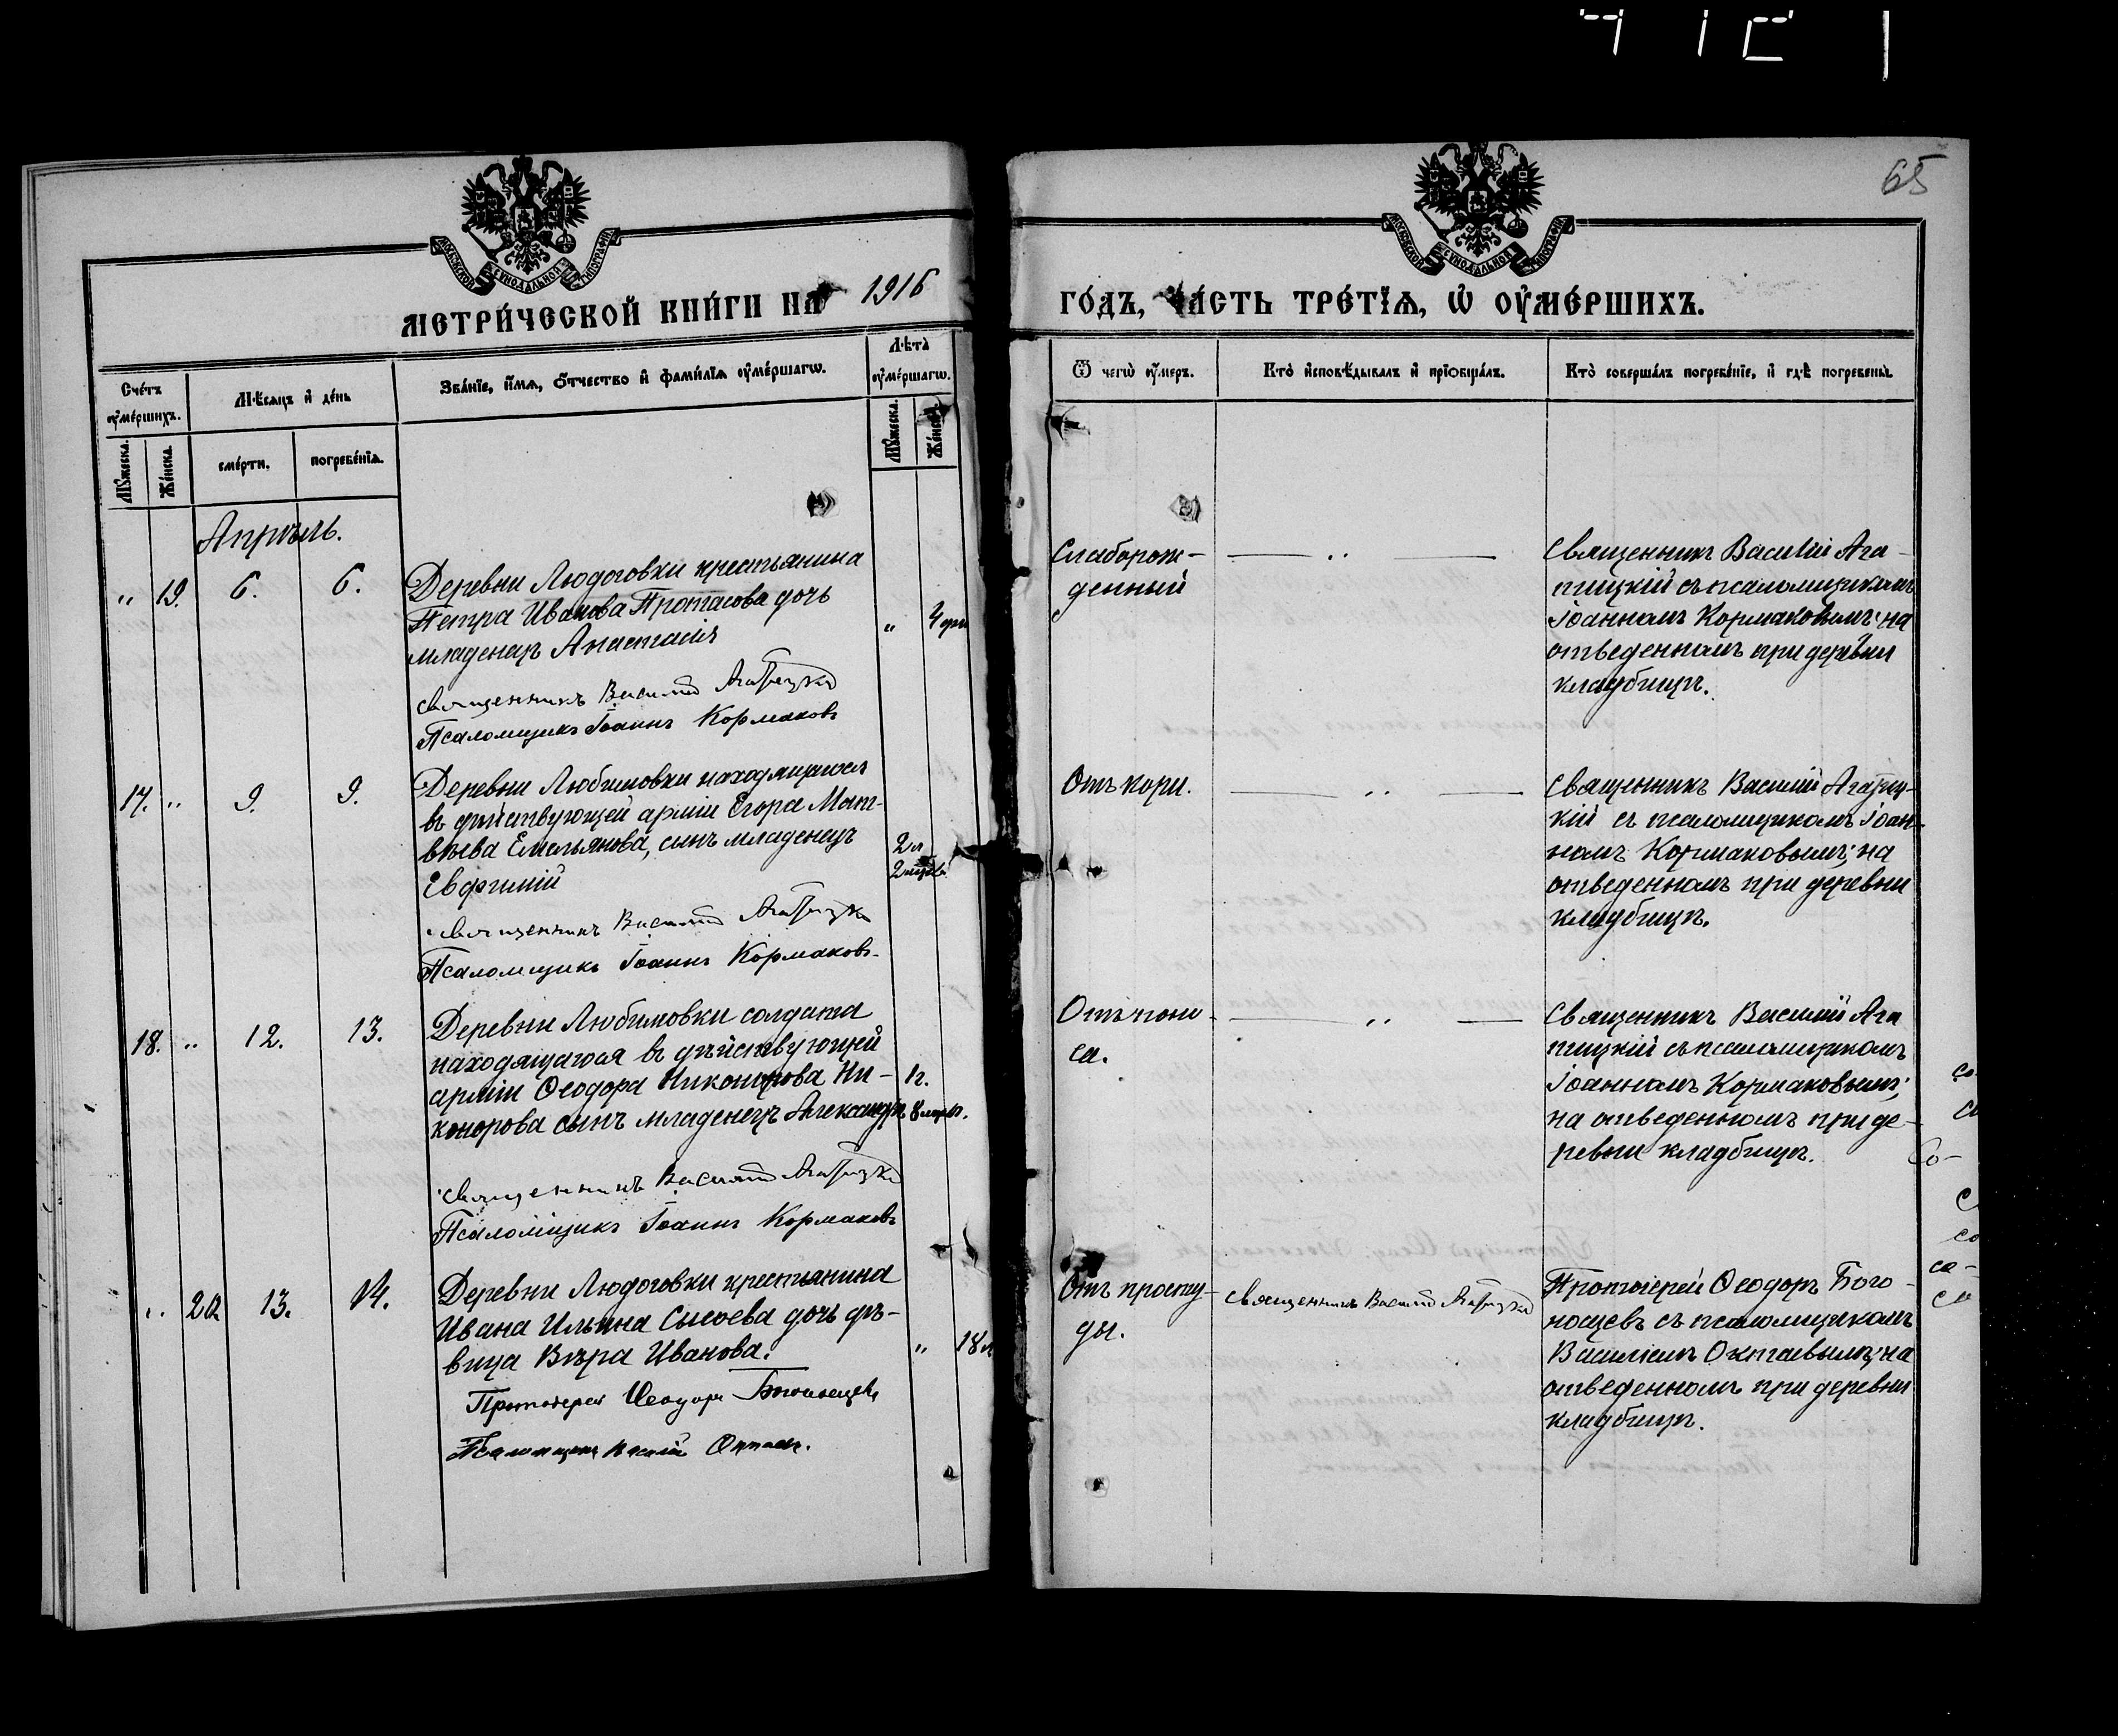 65
МОСКОВСКОЙ СѴНОДАЛЬНОЙ ТИПОГРАФІИ
МОСКОВСКОЙ СѴНОДАЛЬНОЙ ТИПОГРАФІИ
МЕТРИ́ЧЕСКОЙ КНИ́ГИ НА 1916 ГО́ДЪ, ЧА́СТЬ ТРЕ́ТЇѦ, Ѡ҆ ОУ҆МЕ́РШИХЪ.
Сче́тъ оу҆ме́ршихъ.
Мѣ́сяцъ и҆ де́нь
Зва́нїе, и҆́мѧ, ѻ҆́тчество и҆ фами́лїѧ оу҆ме́ршагѡ.
Лѣ́та оу҆ме́ршагѡ.
Ѿ чегѡ̀ оу҆́меръ.
Кто̀ и҆сповѣ́дывалъ и҆ прїѡбща́лъ.
Кто̀ соверша́лъ погребе́нїе, и҆ гдѣ̀ погребены̀.
Мꙋ́жеска.
Же́нска.
сме́рти.
погребе́нїѧ.
Мꙋ́жеска.
Же́нска.
Апрѣль.
„ 19. 6. 6.
Деревни Людоговки крестьянина
Петра Иванова Протасова дочь
младенецъ Анастасія
„ 4 дня
священникъ Василій Агапицкій
Псаломщикъ Іоаннъ Кормаковъ
Слаборож-
денный
— „ —
Священникъ Василій Ага-
пицкій съ псаломщикомъ
Іоанномъ Кормаковымъ; на
отведенномъ при деревни
кладбищѣ.
17. „ 9. 9.
Деревни Любимовки находящагося
въ дѣйствующей арміи Егора Мат-
вѣева Емельянова, сынъ младенецъ
Евфимій
2 л.
2 мѣсяца
священникъ Василій Агапицкій
Псаломщикъ Іоаннъ Кормаковъ.
Отъ кори.
— „ —
Священникъ Василій Агапиц-
кій съ псаломщикомъ Іоан-
номъ Кормаковымъ; на
отведенномъ при деревни
кладбищѣ.
18. „ 12. 13.
Деревни Любимовки солдата
находящагося въ дѣйствующей
арміи Ѳеодора Никонорова Ни-
конорова сынъ младенецъ Александръ
1 г.
8 мѣсяц.
священникъ Василій Агапицкій
Псаломщикъ Іоаннъ Кормаковъ
Отъ поно-
са.
— „ —
Священникъ Василій Ага
пицкій съ псаломщикомъ
Іоанномъ Кормаковымъ;
на отведенномъ при де-
ревни кладбищѣ.
„ 20 13. 14.
Деревни Людоговки крестьянина
Ивана Ильина Сысоева дочь дѣ-
вица Вѣра Иванова.
„ 18 л
Протоіерей Ѳеодоръ Богоносцевъ
Псаломщикъ Василій Октаевъ.
Отъ просту-
ды.
священникъ Василій Агапицкій
Протоіерей Ѳеодоръ Бого-
носцевъ съ псаломщикомъ
Василіемъ Октаевымъ; на
отведенномъ при деревни
кладбищѣ.